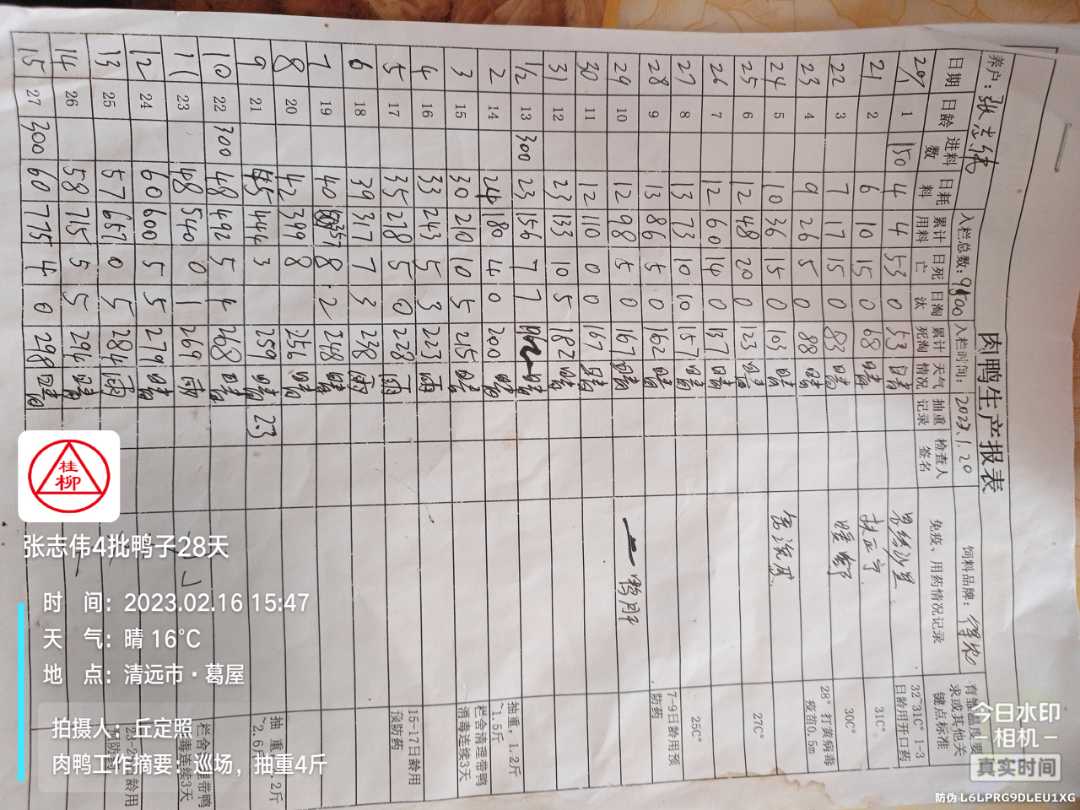 肉鸭生产报表
养户：张志伟 入栏总数：9800 入栏时间：2023.1.20 饲料品牌：
日期 日龄 进料数 日耗料 累计用料 日死亡 日淘汰 累计死淘 天气情况 抽重记录 检查人签名 免疫、用药情况记录 有望温度要求或其他关键点标准
20/1 1 150 4 4 53 0 53 晴 32°31C° 1-3日龄用开口药
21 2 6 10 15 0 68 晴 31C°
22 3 7 17 15 0 83 晴 30C°
23 4 9 26 5 0 88 晴 28° 打黄病毒疫苗0.5m
24 5 10 36 15 0 103 晴 27C°
25 6 12 48 20 0 123 晴
26 7 12 60 14 0 137 晴 25C°
27 8 13 73 10 10 157 晴 7-9日龄用预防药
28 9 13 86 5 0 162 晴
29 10 12 98 5 0 167 晴 鸭肝
30 11 12 110 0 0 167 晴
31 12 23 133 10 5 182 晴
1/2 13 300 23 156 7 7 晴
2 14 24 180 4 0 200 晴 抽重，1.2斤~1.5斤
3 15 30 210 10 5 215 晴 栏舍清理带鸭消毒连续3天
4 16 33 243 5 3 223 雨 15-17日龄用预防药
5 17 35 278 5 0 228 雨
6 18 39 317 7 3 238 雨
7 19 40 357 8 2 248 晴
8 20 42 399 8 256 阳
9 21 45 444 3 259 晴 2.3
10 22 300 48 492 5 4 268 晴
11 23 48 540 0 1 269 雨
12 24 60 600 5 5 279 晴
13 25 57 657 0 5 284 雨
14 26 58 715 5 5 294 晴
15 27 300 60 775 4 0 298 晴
桂柳
张志伟4批鸭子28天
时 间：2023.02.16 15:47
天 气：晴 16℃
地 点：清远市·葛屋
拍摄人：丘定照
肉鸭工作摘要：巡场，抽重4斤
今日水印
相机
真实时间
防伪 L6LPRG9DLEU1XG